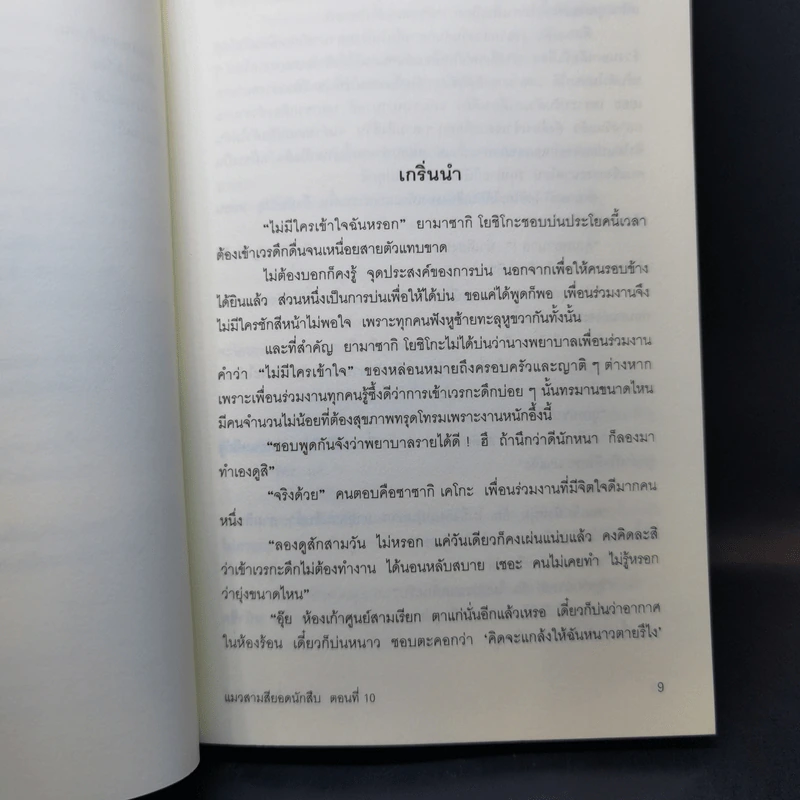 เกริ่นนำ
“ไม่มีใครเข้าใจฉันหรอก” ยามาซากิ โยชิโกะชอบบ่นประโยคนี้เวลา
ต้องเข้าเวรดึกดื่นจนเหนื่อยสายตัวแทบขาด
ไม่ต้องบอกก็คงรู้ จุดประสงค์ของการบ่น นอกจากเพื่อให้คนรอบข้าง
ได้ยินแล้ว ส่วนหนึ่งเป็นการบ่นเพื่อให้ได้บ่น ขอแค่ได้พูดก็พอ เพื่อนร่วมงานจึง
ไม่มีใครชักสีหน้าไม่พอใจ เพราะทุกคนฟังหูซ้ายทะลุหูขวากันทั้งนั้น
และที่สำคัญ ยามาซากิ โยชิโกะไม่ได้บ่นว่านางพยาบาลเพื่อนร่วมงาน
คำว่า “ไม่มีใครเข้าใจ” ของหล่อนหมายถึงครอบครัวและญาติ ๆ ต่างหาก
เพราะเพื่อนร่วมงานทุกคนรู้ซึ้งดีว่าการเข้าเวรกะดึกบ่อย ๆ นั้นทรมานขนาดไหน
มีคนจำนวนไม่น้อยที่ต้องสุขภาพทรุดโทรมเพราะงานหนักอึ้งนี้
“ชอบพูดกันจังว่าพยาบาลรายได้ดี ! ฮึ ถ้านึกว่าดีนักหนา ก็ลองมา
ทำเองดูสิ”
“จริงด้วย” คนตอบคือซาซากิ เคโกะ เพื่อนร่วมงานที่มีจิตใจดีมากคน
หนึ่ง
“ลองดูสักสามวัน ไม่หรอก แค่วันเดียวก็คงเผ่นแน่บแล้ว คงคิดละสิ
ว่าเข้าเวรกะดึกไม่ต้องทำงาน ได้นอนหลับสบาย เชอะ คนไม่เคยทำ ไม่รู้หรอก
ว่ายุ่งขนาดไหน”
“อุ๊ย ห้องเก้าศูนย์สามเรียก ตาแก่นั่นอีกแล้วเหรอ เดี๋ยวก็บ่นว่าอากาศ
ในห้องร้อน เดี๋ยวก็บ่นหนาว ชอบตะคอกว่า ‘คิดจะแกล้งให้ฉันหนาวตายรึไง’
แมวสามสียอดนักสืบ ตอนที่ 10
9